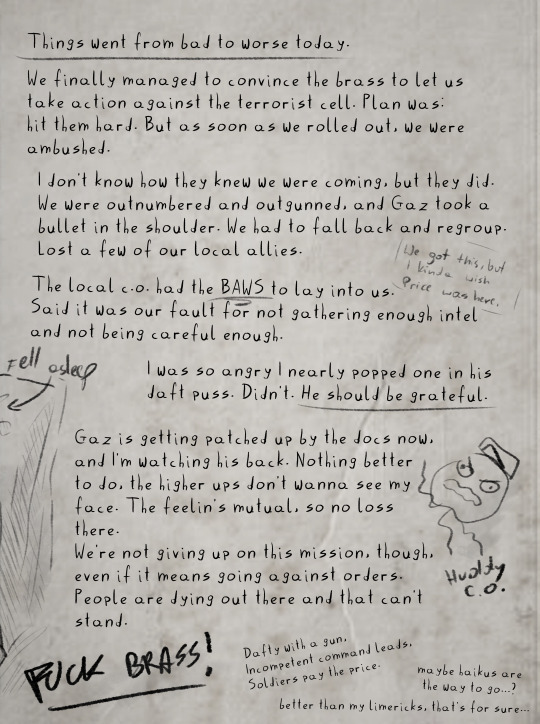 Things went from bad to worse today.
We finally managed to convince the brass to let us
take action against the terrorist cell. Plan was:
hit them hard. But as soon as we rolled out, we were
ambushed.
I don't know how they knew we were coming, but they did.
We were outnumbered and outgunned, and Gaz took a
bullet in the shoulder. We had to fall back and regroup.
Lost a few of our local allies.
We got this, but
I kinda wish
Price was here.
The local c.o. had the BAWS to lay into us.
Said it was our fault for not gathering enough intel
and not being careful enough.
Fell asleep
I was so angry I nearly popped one in his
daft puss. Didn't. He should be grateful.
Gaz is getting patched up by the docs now,
and I'm watching his back. Nothing better
to do, the higher ups don't wanna see my
face. The feelin's mutual, so no loss
there.
We're not giving up on this mission, though,
even if it means going against orders.
People are dying out there and that can't
stand.
C.O.
FUCK BRASS!
Dafty with a gun,
Incompetent command leads,
Soldiers pay the price.
maybe haikus are
the way to go...?
better than my limericks, that's for sure...